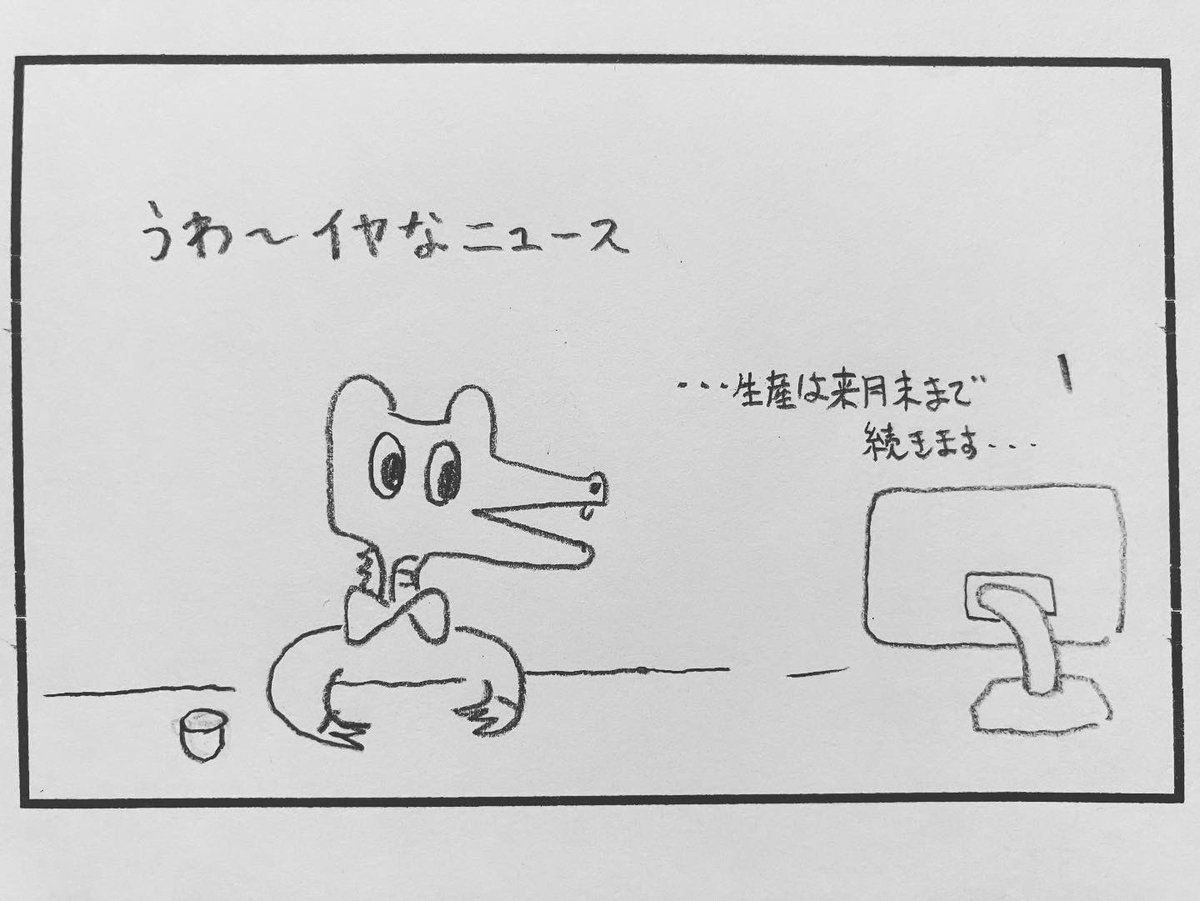 うわ〜イヤなニュース
・・・生産は来月末まで
続きます・・・